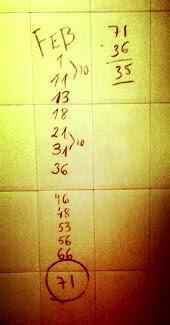 FEB
1
11 10
13
18
21
31 10
36
46
48
53
56
66
71
71
36
35